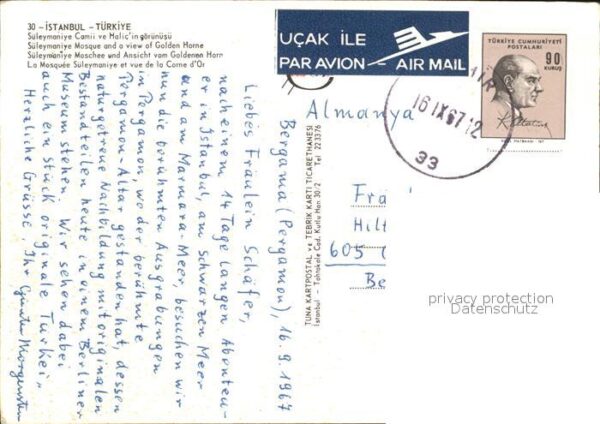 30 - İSTANBUL - TÜRKİYE
Süleymaniye Camii ve Haliç'in görünüşü
Süleymaniye Mosque and a view of Golden Horne
Süleymaniye Moschee und Ansicht vom Goldenen Horn
La Mosquée Süleymaniye et vue de la Corne d'Or
UÇAK İLE
PAR AVION - AIR MAIL
TÜRKİYE CUMHURİYETİ
POSTALARI
90
KURUŞ
16 IX 67 12
33
Almanya
Bergama (Pergamon), 16.9.1967
Liebes Fräulein Schäfer,
nach einem 14 Tage langen Abenteu-
er in Istanbul, am Schwarzen Meer
und am Marmara-Meer, besuchen wir
nun die berühmten Ausgrabungen
in Pergamon, wo der berühmte
Pergamon-Altar gestanden hat, dessen
naturgetreue Nachbildung mit originalen
Bestandteilen heute in einem Berliner
Museum stehen. Wir sehen dabei
auch ein Stück originale Türkei.
Herzliche Grüsse, Ihr Günter Morgenstern
TUNA KARTPOSTAL ve TEBRİK KARTI TİCARETHANESİ
İstanbul - Tahtakale Cad. Kutlu Han 30/2 Tel. 223376
Frä
Hilt
605
Be
privacy protection
Datenschutz